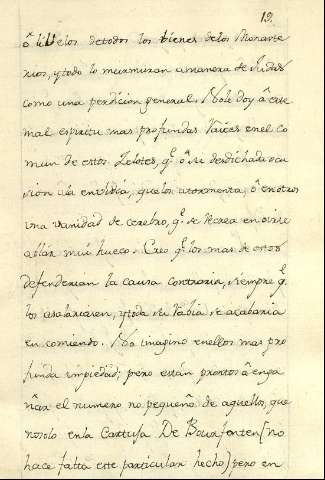 19.
ô libelos de todos los bienes de los Monaste
rios, y todo lo murmuran a manera de Judas
como una perdicion general. No le doy â este
mal espiritu mas profundas raices en el co
mun de estos Zelotes, q.^e ô su desdichada ocu
sion û la envidia, que los atormenta, ô en otros
una vanidad de cerebro, q.^e se recrea en oirse
ablar mui hueco. Creo q.^e los mas de estos
defenderian la causa contraria, siempre q.^e
los asalariasen, y toda su rabia se acabaria
en comiendo. No imagino en ellos mas pro
funda impiedad; pero están prontos â enga
ñar el numero no pequeño de aquellos, que
no solo en la Cartuja De Bourfonten (no
hace falta este particular hecho) pero en